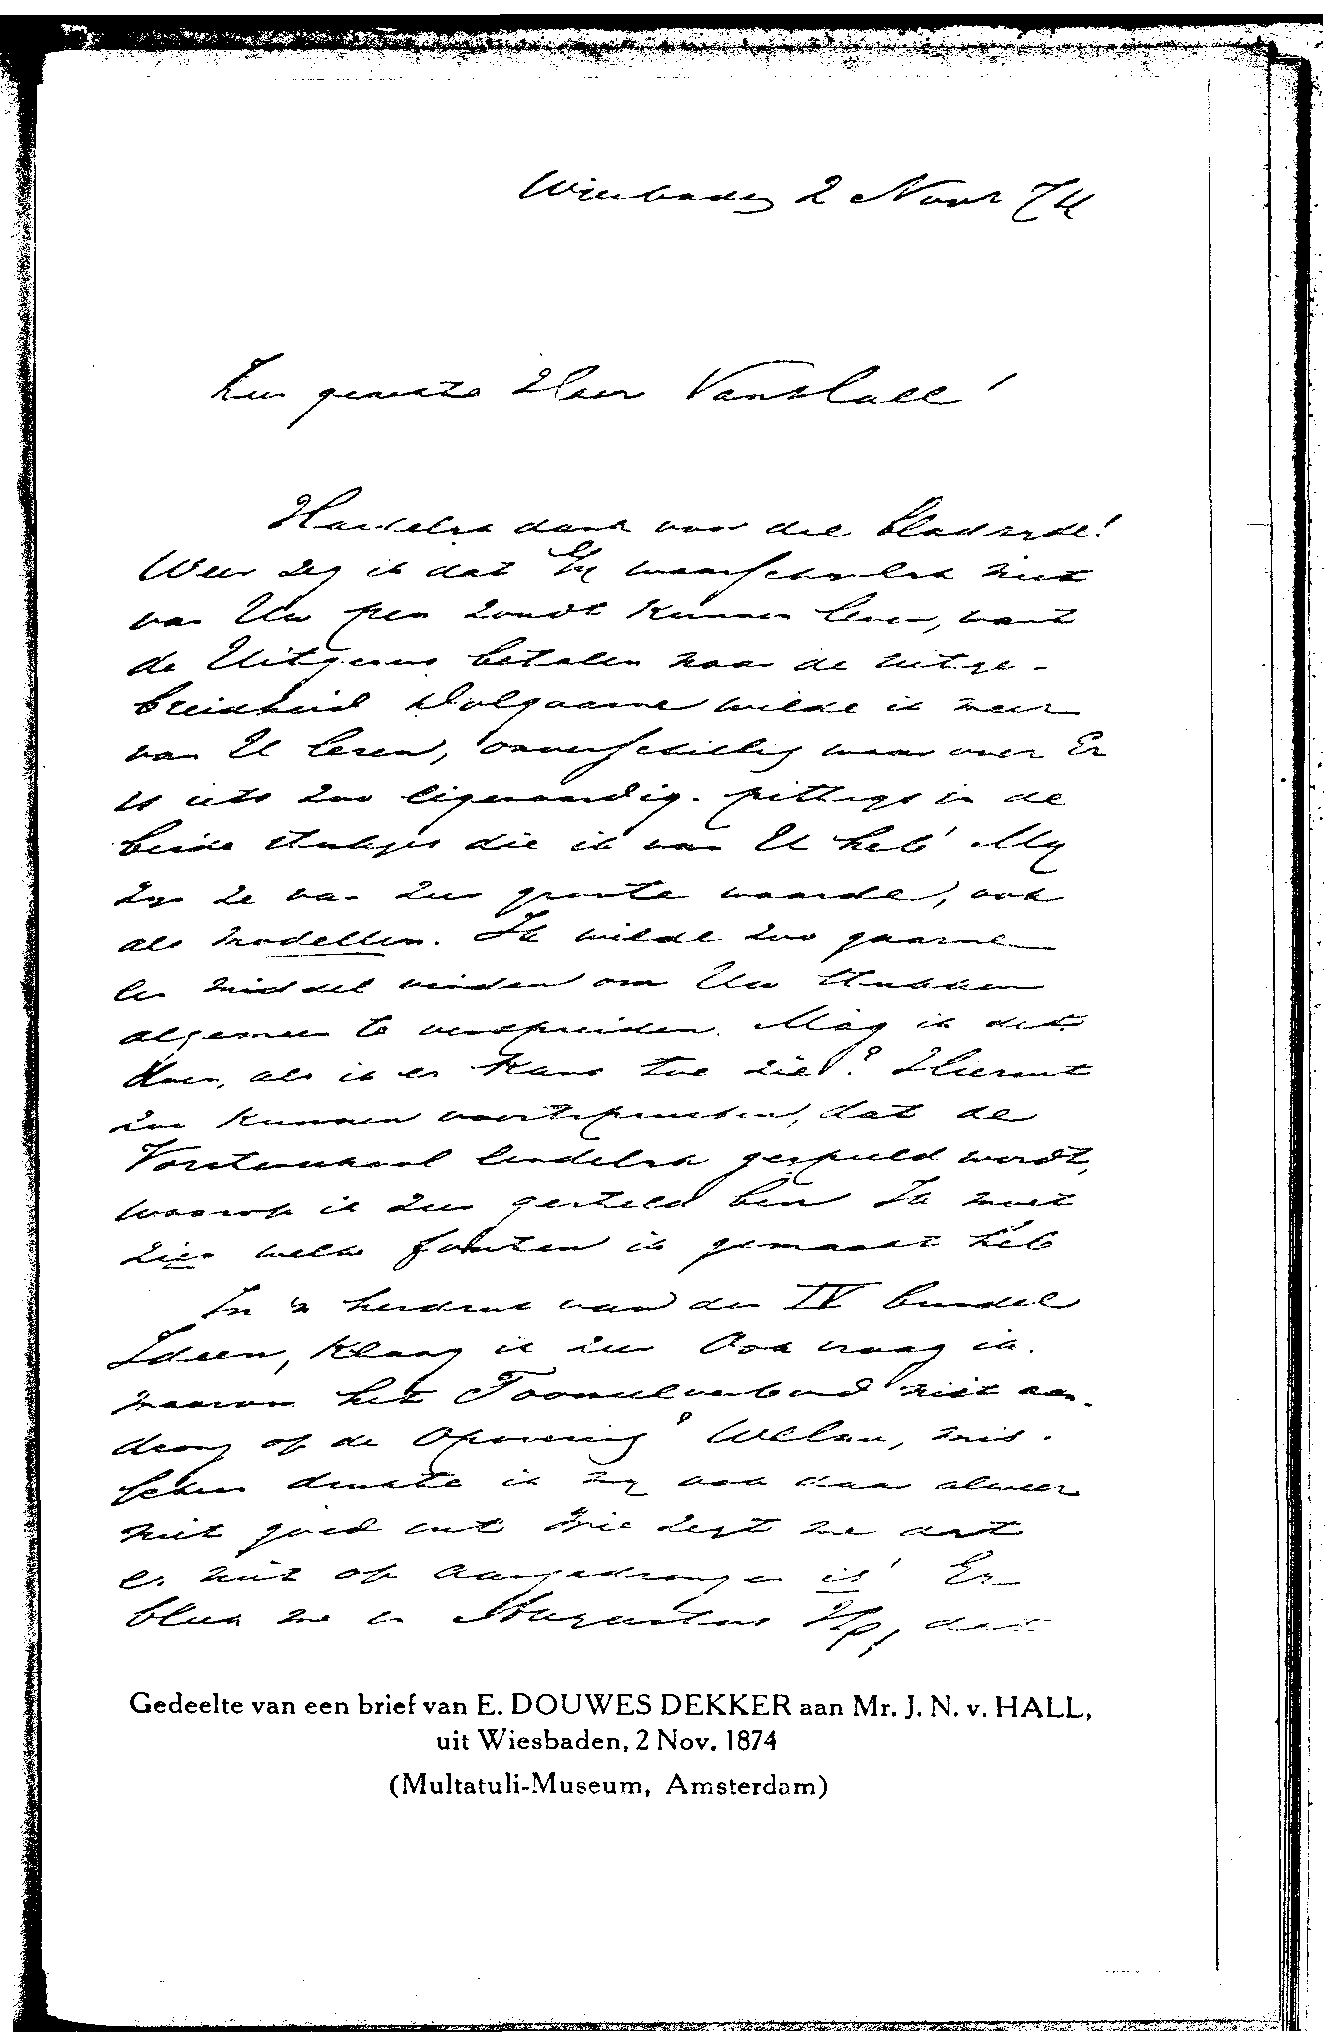 Wiesbaden 2 Novr 74
Zeer geachte Heer Van Hall!
Hartelyk dank voor dat bladzyde!
Weer zeg ik dat Gy waarschynlyk niet
van Uw pen zoudt kunnen leven, want
de Uitgevers betalen naar de uitge-
breidheid Dolgaarne wilde ik meer
van U lezen, onverschillig waarover Er
is iets zoo eigenaardig-pittigs in de
beide stukjes die ik van U heb! My
zyn ze van zeer groote waarde, ook
als modellen. Ik wilde zoo gaarne
een middel vinden om Uw stukken
algemeen te verspreiden. Mag ik dit
doen, als ik er kans toe zie? Hieruit
zou kunnen voortspruiten, dat de
Vorstenschool eindelyk gespeeld wordt,
waarop ik zeer gesteld ben Ik moet
zien welke fouten ik gemaakt heb
In 'n herdruk van den IV bundel
Ideen, klaag ik zeer Ook vraag ik
waarom het Tooneelverbond niet aan-
drong op de opvoering? Welnu, mis-
schien drukte ik my ook daar alweer
niet goed uit Wie zegt me dat
er niet op aangedrongen is! Er
bleek me in Augustus Hp, dat
Gedeelte van een brief van E. DOUWES DEKKER aan Mr. J. N. v. HALL,
uit Wiesbaden, 2 Nov. 1874
(Multatuli-Museum, Amsterdam)